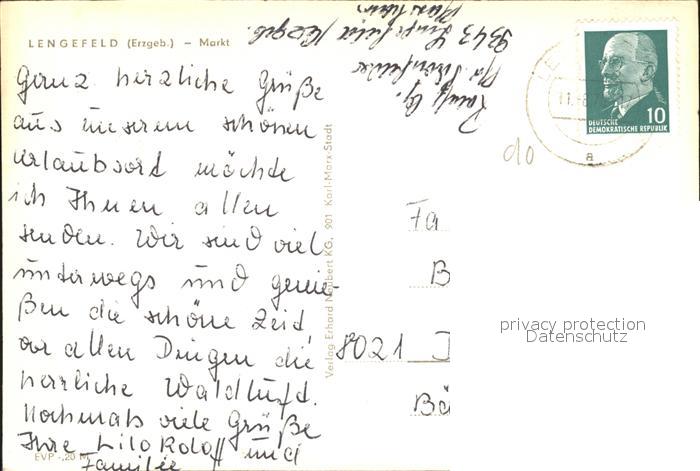 LENGEFELD (Erzgeb.) – Markt
Ganz herzliche Grüße
aus unserem schönen
Urlaubsort möchte
ich Ihnen allen
senden. Wir sind viel
unterwegs und genie-
ßen die schöne Zeit,
vor allen Dingen die
herrliche Waldluft.
Nochmals viele Grüße
Ihre Lilo Roloff und
Familie
EVP -,20 M
Verlag Erhard Neubert KG, 901 Karl-Marx-Stadt
9343
DEUTSCHE
DEMOKRATISCHE REPUBLIK
10
a
Fa
B
8021
Bä
privacy protection
Datenschutz